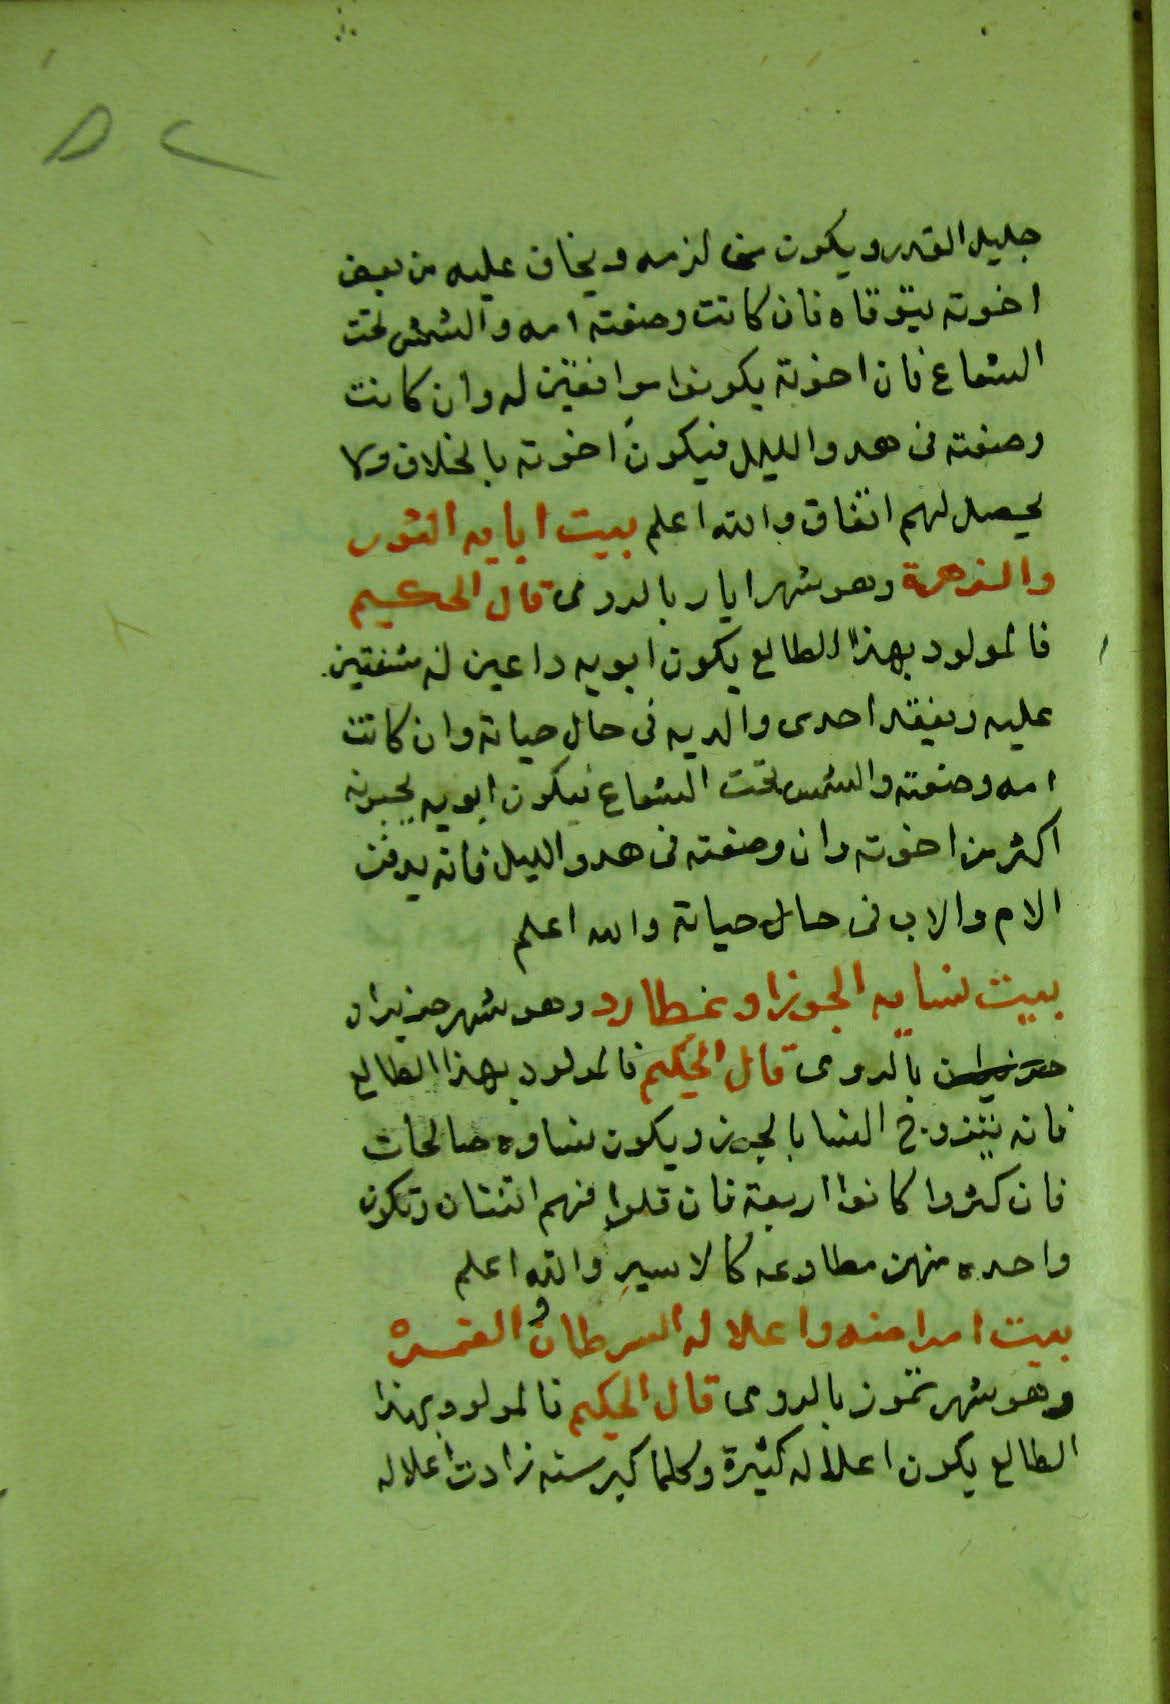 جليل القدر ويكون لزمه ويخاف عليه من بعض
اخوته يتوقاه فان كانت وضعته امه والشمس تحت
الشعاع فان اخوته يكونوا موافقين له وان كانت
وضعته في هدو الليل فيكون اخوته بالخلاف ولا
يحصل لهم اتفاق والله اعلم بيت ابايه الثور
والزهرة وهو شهر ايار بالرومي قال الحكيم
فالمولود بهذا الطالع يكون ابويه داعين له شفقين
عليه ويفقد احدى والديه في حال حياته وان كانت
امه وضعته والشمس تحت الشعاع فيكون ابويه يحبونه
اكثر من اخوته وان وضعته في هدو الليل فانه يدفن
الام والاب في حال حياته والله اعلم
بيت نسايه الجوزا وعطارد وهو شهر حزيران
بالرومي قال الحكيم فالمولود بهذا الطالع
فانه يتزوج النسا ويكون نساوه صالحات
فان كثروا كانوا اربعة فان قلوا فهم اثنتان وتكون
واحده منهن مطاوعه كالاسير والله اعلم
بيت امراضه واعلاله السرطان والقمر
وهو شهر تموز بالرومي قال الحكيم فالمولود بهذا
الطالع يكون اعلاله كثيرة وكلما كبر سنه زادت اعلاله